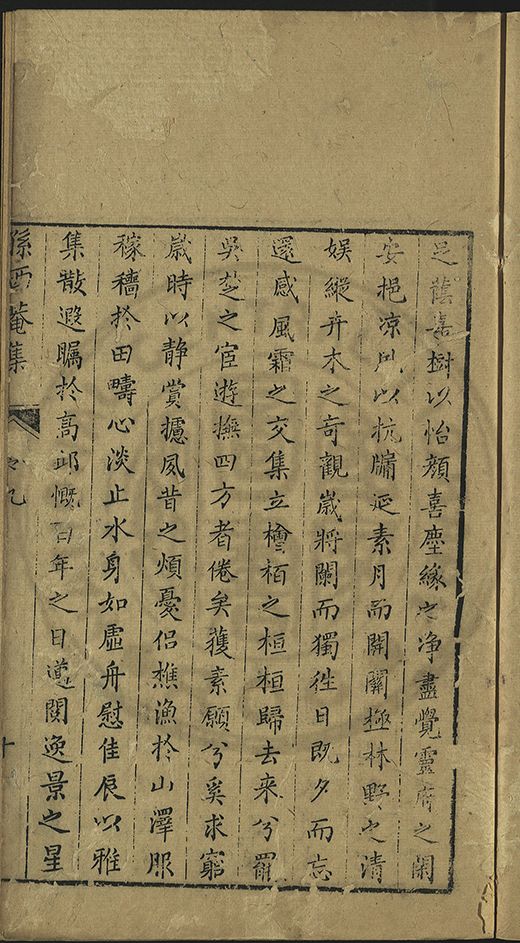 足蔭嘉樹以怡顏喜塵緣之净盡覺靈府之閑
安挹凉風以抗牖延素月而開關極林野之清
娯縱卉木之奇觀歳將闌而獨徃日既夕而忘
還感風霜之交集立檜栢之桓桓歸去来兮罷
吳楚之宦遊撫四方者倦矣獲素願兮奚求窮
歳時以静賞攄夙昔之煩憂侶樵漁於山澤服
稼穡於田疇心淡止水身如虛舟慰佳辰以雅
集散遐矚於高邱慨百年之日邁閱逸景之星
孫西菴集 卷九 十